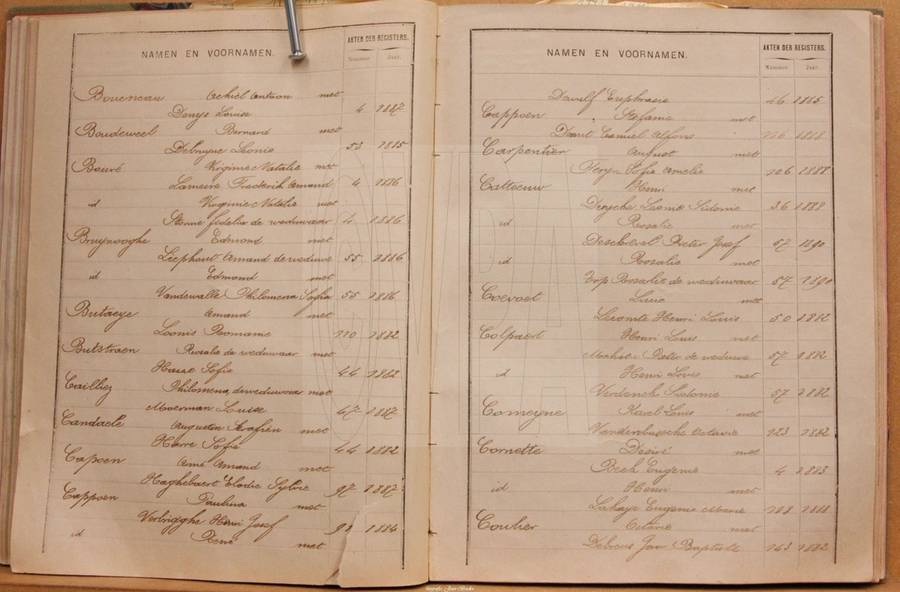 NAMEN EN VOORNAMEN.
AKTEN DER REGISTERS.
Nummer. Jaar.
Boueneau Achiel Antoon met
Denys Louise 4 1887
Boudeweel Bernard met
Debruyne Leonie 53 1885
Bouré Virginie Natalie met
Lameire Frederik Amand 4 1886
id Virginie Natalie met
Stenne fidelis de weduwaar 4 1886
Bruynooghe Edmond met
Liephout Amand de weduwe 55 1886
id Edmond met
Vandewalle Philomena Sofia 55 1886
Butaeye Amand met
Loonis Romanie 110 1882
Butstraen Rosalie de weduwaar met
Hasse Sofie 44 1882
Cailliez Philomena de weduwaar met
Moerman Louise 47 1887
Candaele Augustin Serafien met
Herre Sofie 44 1882
Capoen Aimé Amand met
Haghebaert Elodie Sylvie 97 1887
Cappoen Paulina met
Verbrigghe Henri Josef 92 1884
id René met
NAMEN EN VOORNAMEN.
AKTEN DER REGISTERS.
Nummer. Jaar.
Dewulf Eufrasie 46 1885
Cappoen Stefanie met
Daut Camiel Alfons 116 1888
Carpentier August met
Feryn Sofia Amelie 106 1887
Catteeuw Henri met
Druyche Leonie Sidonie 36 1888
id Rosalie met
Deschoevel Pieter Josef 57 1890
id Rosalie met
Top Rosalie de weduwaar 57 1890
Coevoet Lucie met
Lecomte Henri Louis 50 1882
Colpaert Henri Louis met
Mahieu Peter de weduwe 57 1882
id Henri Louis met
Verdonck Sidonie 57 1882
Comeyne Karel Louis met
Vandenbussche Octavie 123 1882
Cornette Désiré met
Beck Eugenie 4 1883
id Henri met
Lahaye Eugenie Marie 108 1888
Coulier Octavie met
Debroux Jan Baptiste 163 1882